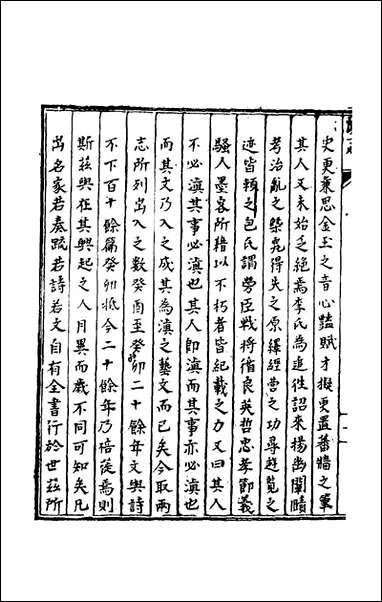 史更秉思金玉之音心豔賦才擬更置蕃牆之筆
其人又未始乏絕焉李氏為迫往詔來揚幽闡賾
考治亂之槩覈得失之原繹經營之功尋遊覽之
迹皆類之包氏謂勞臣戰將循良英哲忠孝節義
騷人墨客所藉以不朽者皆紀載之力又曰其人
不必滇其事必滇也其人即滇而其事亦必滇也
而其文乃入之成其為滇之藝文而已矣今取兩
志所列出入之數癸酉至癸卯二十餘年文與詩
不下百十餘篇癸卯抵今二十餘年乃倍蓰焉則
斯茲與在其興起之人月異而歲不同可知矣凡
出名家若奏疏若詩若文自有全書行於世茲所